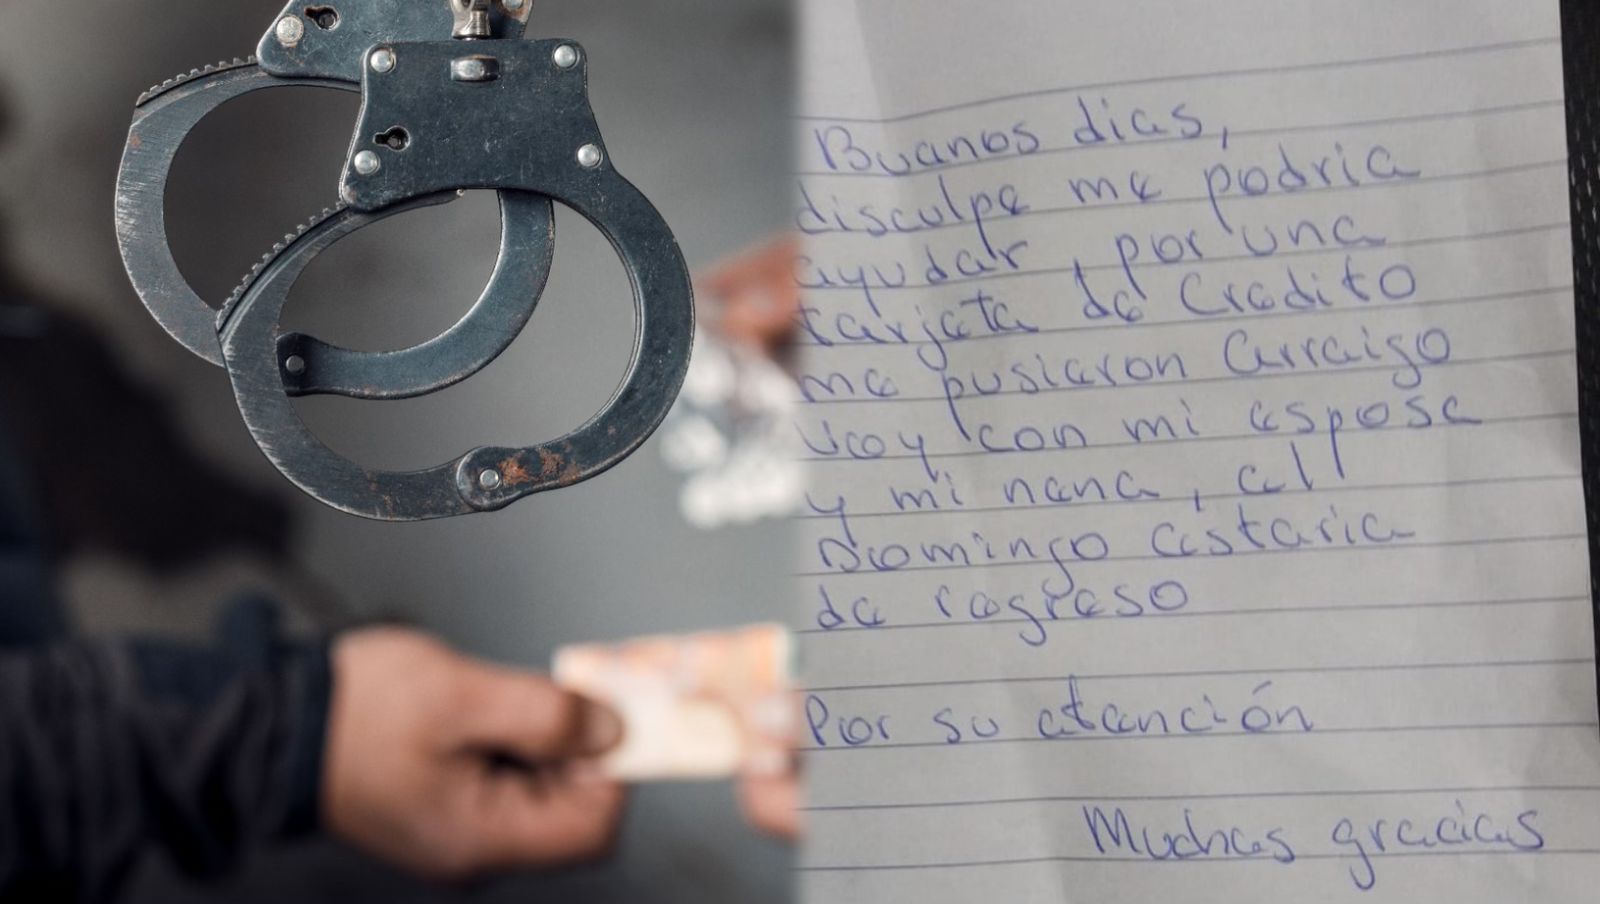 Buenos dias,
disculpe me podria
ayudar, por una
tarjeta de Credito
me pusieron arraigo
voy con mi esposa
y mi nena, el
Domingo estaria
de regreso
Por su atención
Muchas gracias